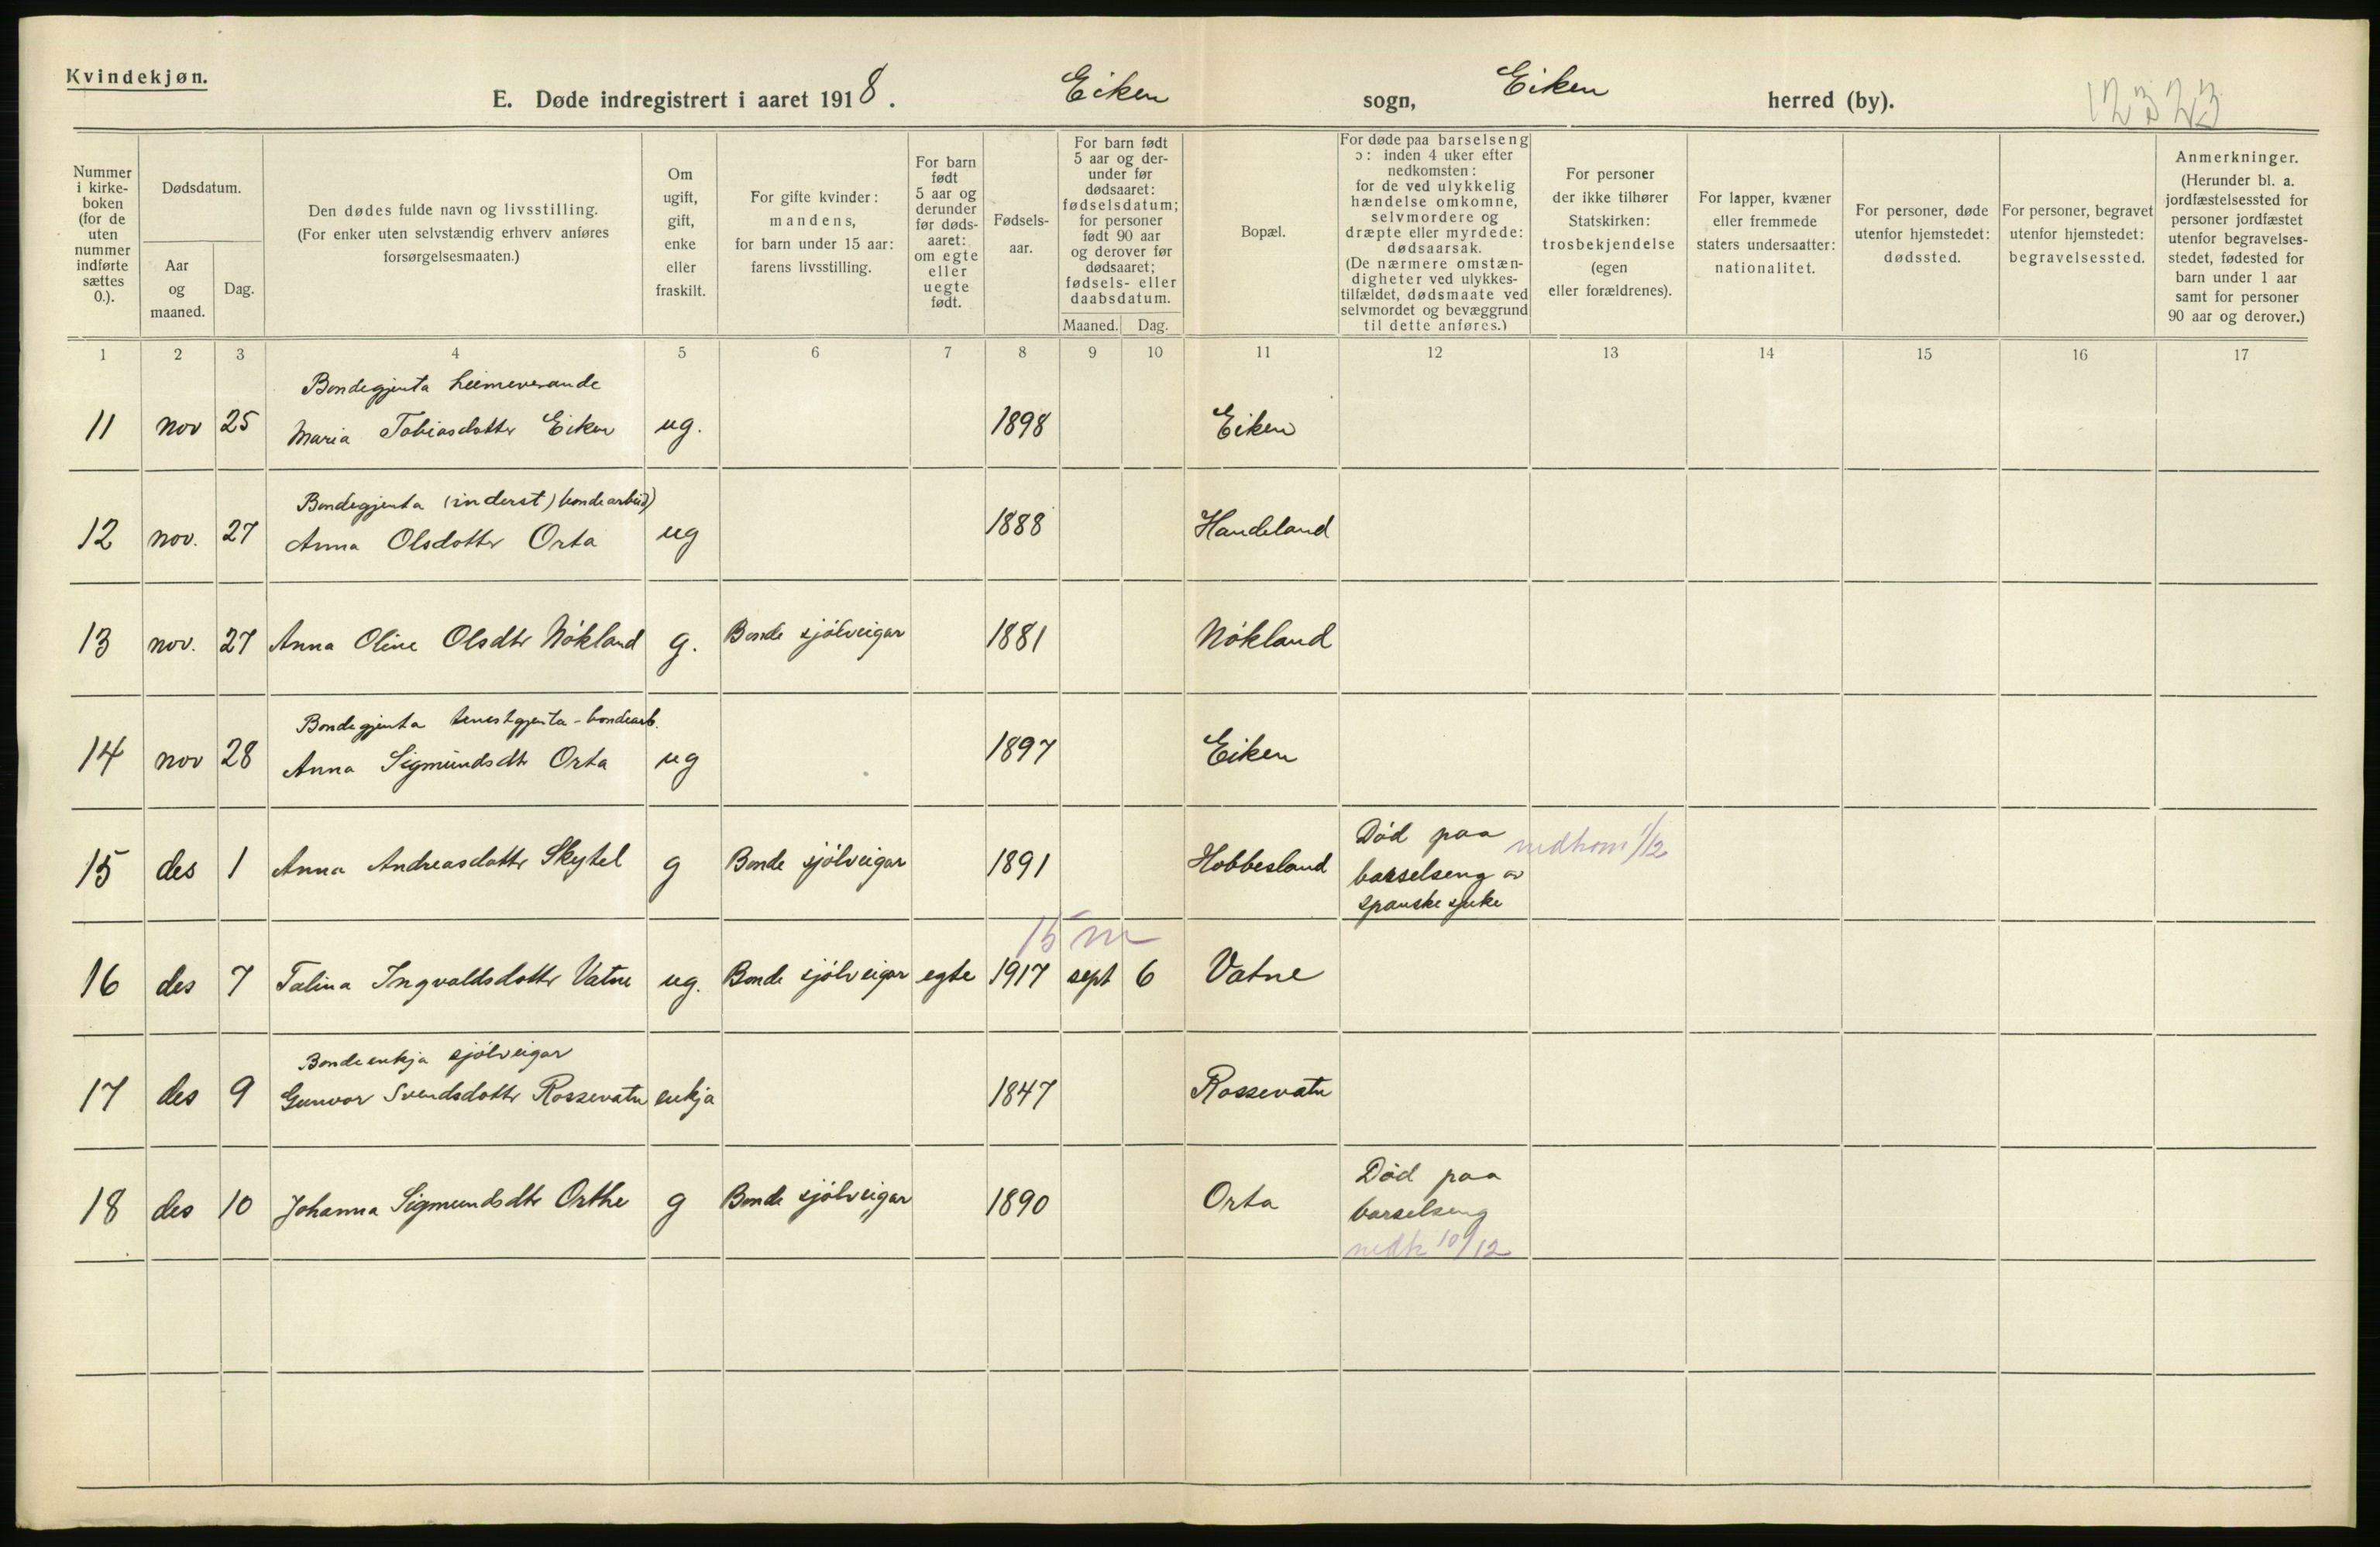 Kvindekjøn.
E. Døde indregistrert i aaret 1918. Eiken sogn, Eiken herred (by). 12323
Nummer i kirkeboken (for de uten nummer indførte sættes 0.).
Dødsdatum.
Aar og maaned.
Dag.
Den dødes fulde navn og livsstilling.
(For enker uten selvstændig erhverv anføres
forsørgelsesmaaten.)
Om ugift, gift, enke eller fraskilt.
For gifte kvinder:
mandens,
for barn under 15 aar:
farens livsstilling.
For barn født 5 aar og derunder før dødsaaret: om egte eller uegte født.
Fødselsaar.
For barn født 5 aar og derunder før dødsaaret: fødselsdatum; for personer født 90 aar og derover før dødsaaret; fødsels- eller daabsdatum.
Maaned. Dag.
Bopæl.
For døde paa barselseng
ɔ: inden 4 uker efter
nedkomsten:
for de ved ulykkelig
hændelse omkomne,
selvmordere og
dræpte eller myrdede:
dødsaarsak.
(De nærmere omstæn-
digheter ved ulykkes-
tilfældet, dødsmaate ved
selvmordet og bevæggrund
til dette anføres.)
For personer
der ikke tilhører
Statskirken:
trosbekjendelse
(egen
eller forældrenes).
For lapper, kvæner
eller fremmede
staters undersaatter:
nationalitet.
For personer, døde
utenfor hjemstedet:
dødssted.
For personer, begravet
utenfor hjemstedet:
begravelsessted.
Anmerkninger.
(Herunder bl. a.
jordfæstelsessted for
personer jordfæstet
utenfor begravelses-
stedet, fødested for
barn under 1 aar
samt for personer
90 aar og derover.)
1 2 3 4 5 6 7 8 9 10 11 12 13 14 15 16 17
Bondegjenta heimeverande
11 nov 25 Maria Tobiasdotter Eiken ug. 1898 Eiken
Bondegjenta (inderst) bondearbeid)
12 nov. 27 Anna Olsdotter Orta ug 1888 Handeland
13 nov. 27 Anna Oline Olsdtr Nökland g. Bonde sjölveigar 1881 Nökland
Bondegjenta tenestgjenta - bondearb.
14 nov 28 Anna Sigmundsdtr Orta ug 1897 Eiken
15 des 1 Anna Andreasdotter Skytel g Bonde sjölveigar 1891 Hobbesland Död paa nedkom 1/12
barselseng av
spanske sjuke
15 m
16 des 7 Talina Ingvaldsdotter Vatne ug. Bonde sjölveigar egte 1917 sept 6 Vatne
Bondeenkja sjölveigar
17 des 9 Gunvor Svendsdotter Rossevatn enkja 1847 Rossevatn
18 des 10 Johanna Sigmundsdtr Orthe g Bonde sjölveigar 1890 Orta Död paa
barselseng
nedk 10/12